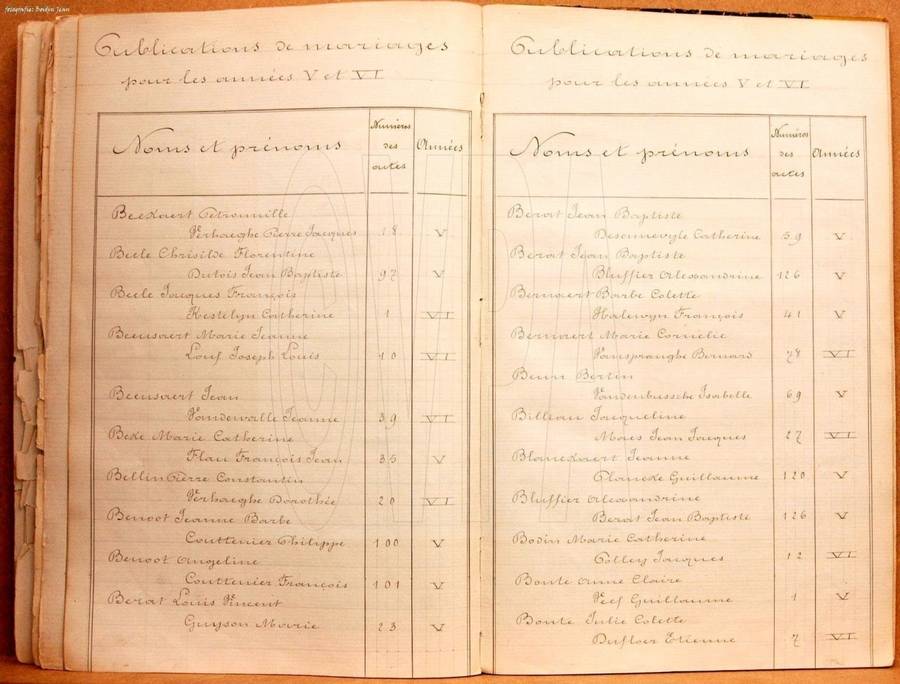 fotografie: Boidyn Jean
Publications de mariages
pour les années V et VI
Noms et prénoms
Numéros des actes
Années
Beekaert Petronnille
Verhaeghe Pierre Jacques 18 V
Beele Chrisilde Florentine
Dutois Jean Baptiste 92 V
Beele Jacques François
Kestelyn Catherine 1 VI
Beeusaert Marie Jeanne
Louf Joseph Louis 10 VI
Beeusaert Jean
Vandewalle Jeanne 39 VI
Beke Marie Catherine
Flau François Jean 35 V
Bellin Pierre Constantin
Verhaeghe Dorothée 20 VI
Benoot Jeanne Barbe
Couttenier Philippe 100 V
Benoot Angeline
Couttenier François 101 V
Berat Louis Vincent
Guyson Marie 23 V
Publications de mariages
pour les années V et VI
Noms et prénoms
Numéros des actes
Années
Berat Jean Baptiste
Catherine 59 V
Berat Jean Baptiste
Bluffier Alexandrine 126 V
Bernaert Barbe Colette
Halewyn François 41 V
Bernaert Marie Cornélie
Vanspranghe Bernard 78 VI
Beun Bertin
Vandenbussche Isabelle 69 V
Billeau Jacqueline
Maes Jean Jacques 27 VI
Blanekaert Jeanne
Planeke Guillaume 120 V
Bluffier Alexandrine
Berat Jean Baptiste 126 V
Bodin Marie Catherine
Polley Jacques 12 VI
Bonte Anne Claire
Veef Guillaume 1 V
Bonte Julie Colette
Dufloer Etienne 7 VI